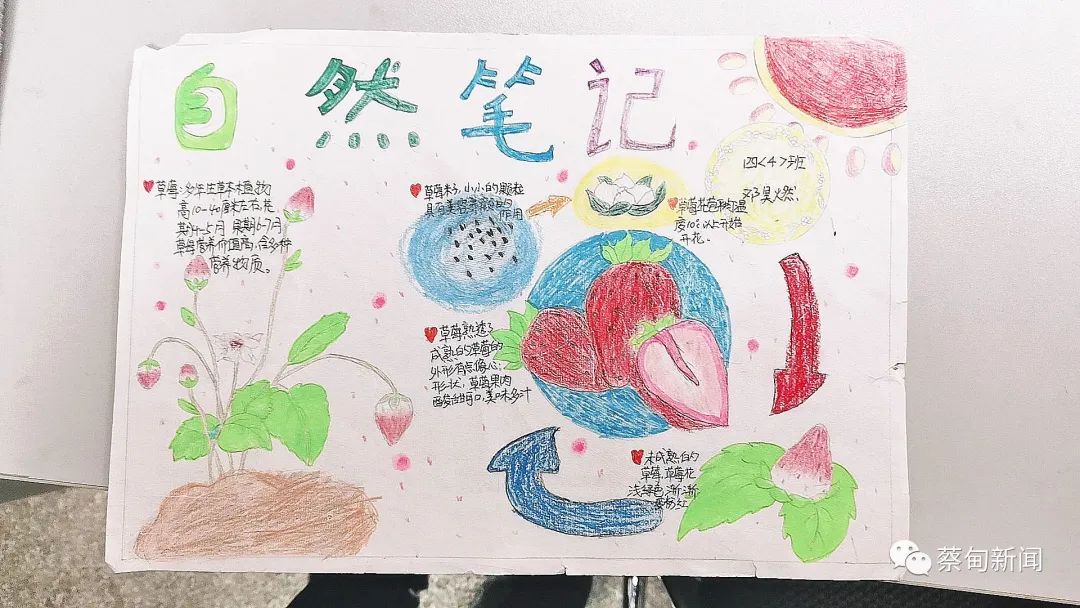 自然笔记
四<4>班
邓昊燃
草莓:多年生草本植物
高10-40厘米左右花
期4-5月 果期6-7月
草莓营养价值高,含多种
营养物质。
草莓籽,小小的颗粒
具有美容养颜的
作用
草莓花苞平均温
度10℃以上开始
开花。
草莓熟透了
成熟的草莓的
外形有点像心
形状,草莓果肉
酸甜可口,美味多汁
未成熟的
草莓,草莓花
浅绿色渐渐
变粉红
蔡甸新闻